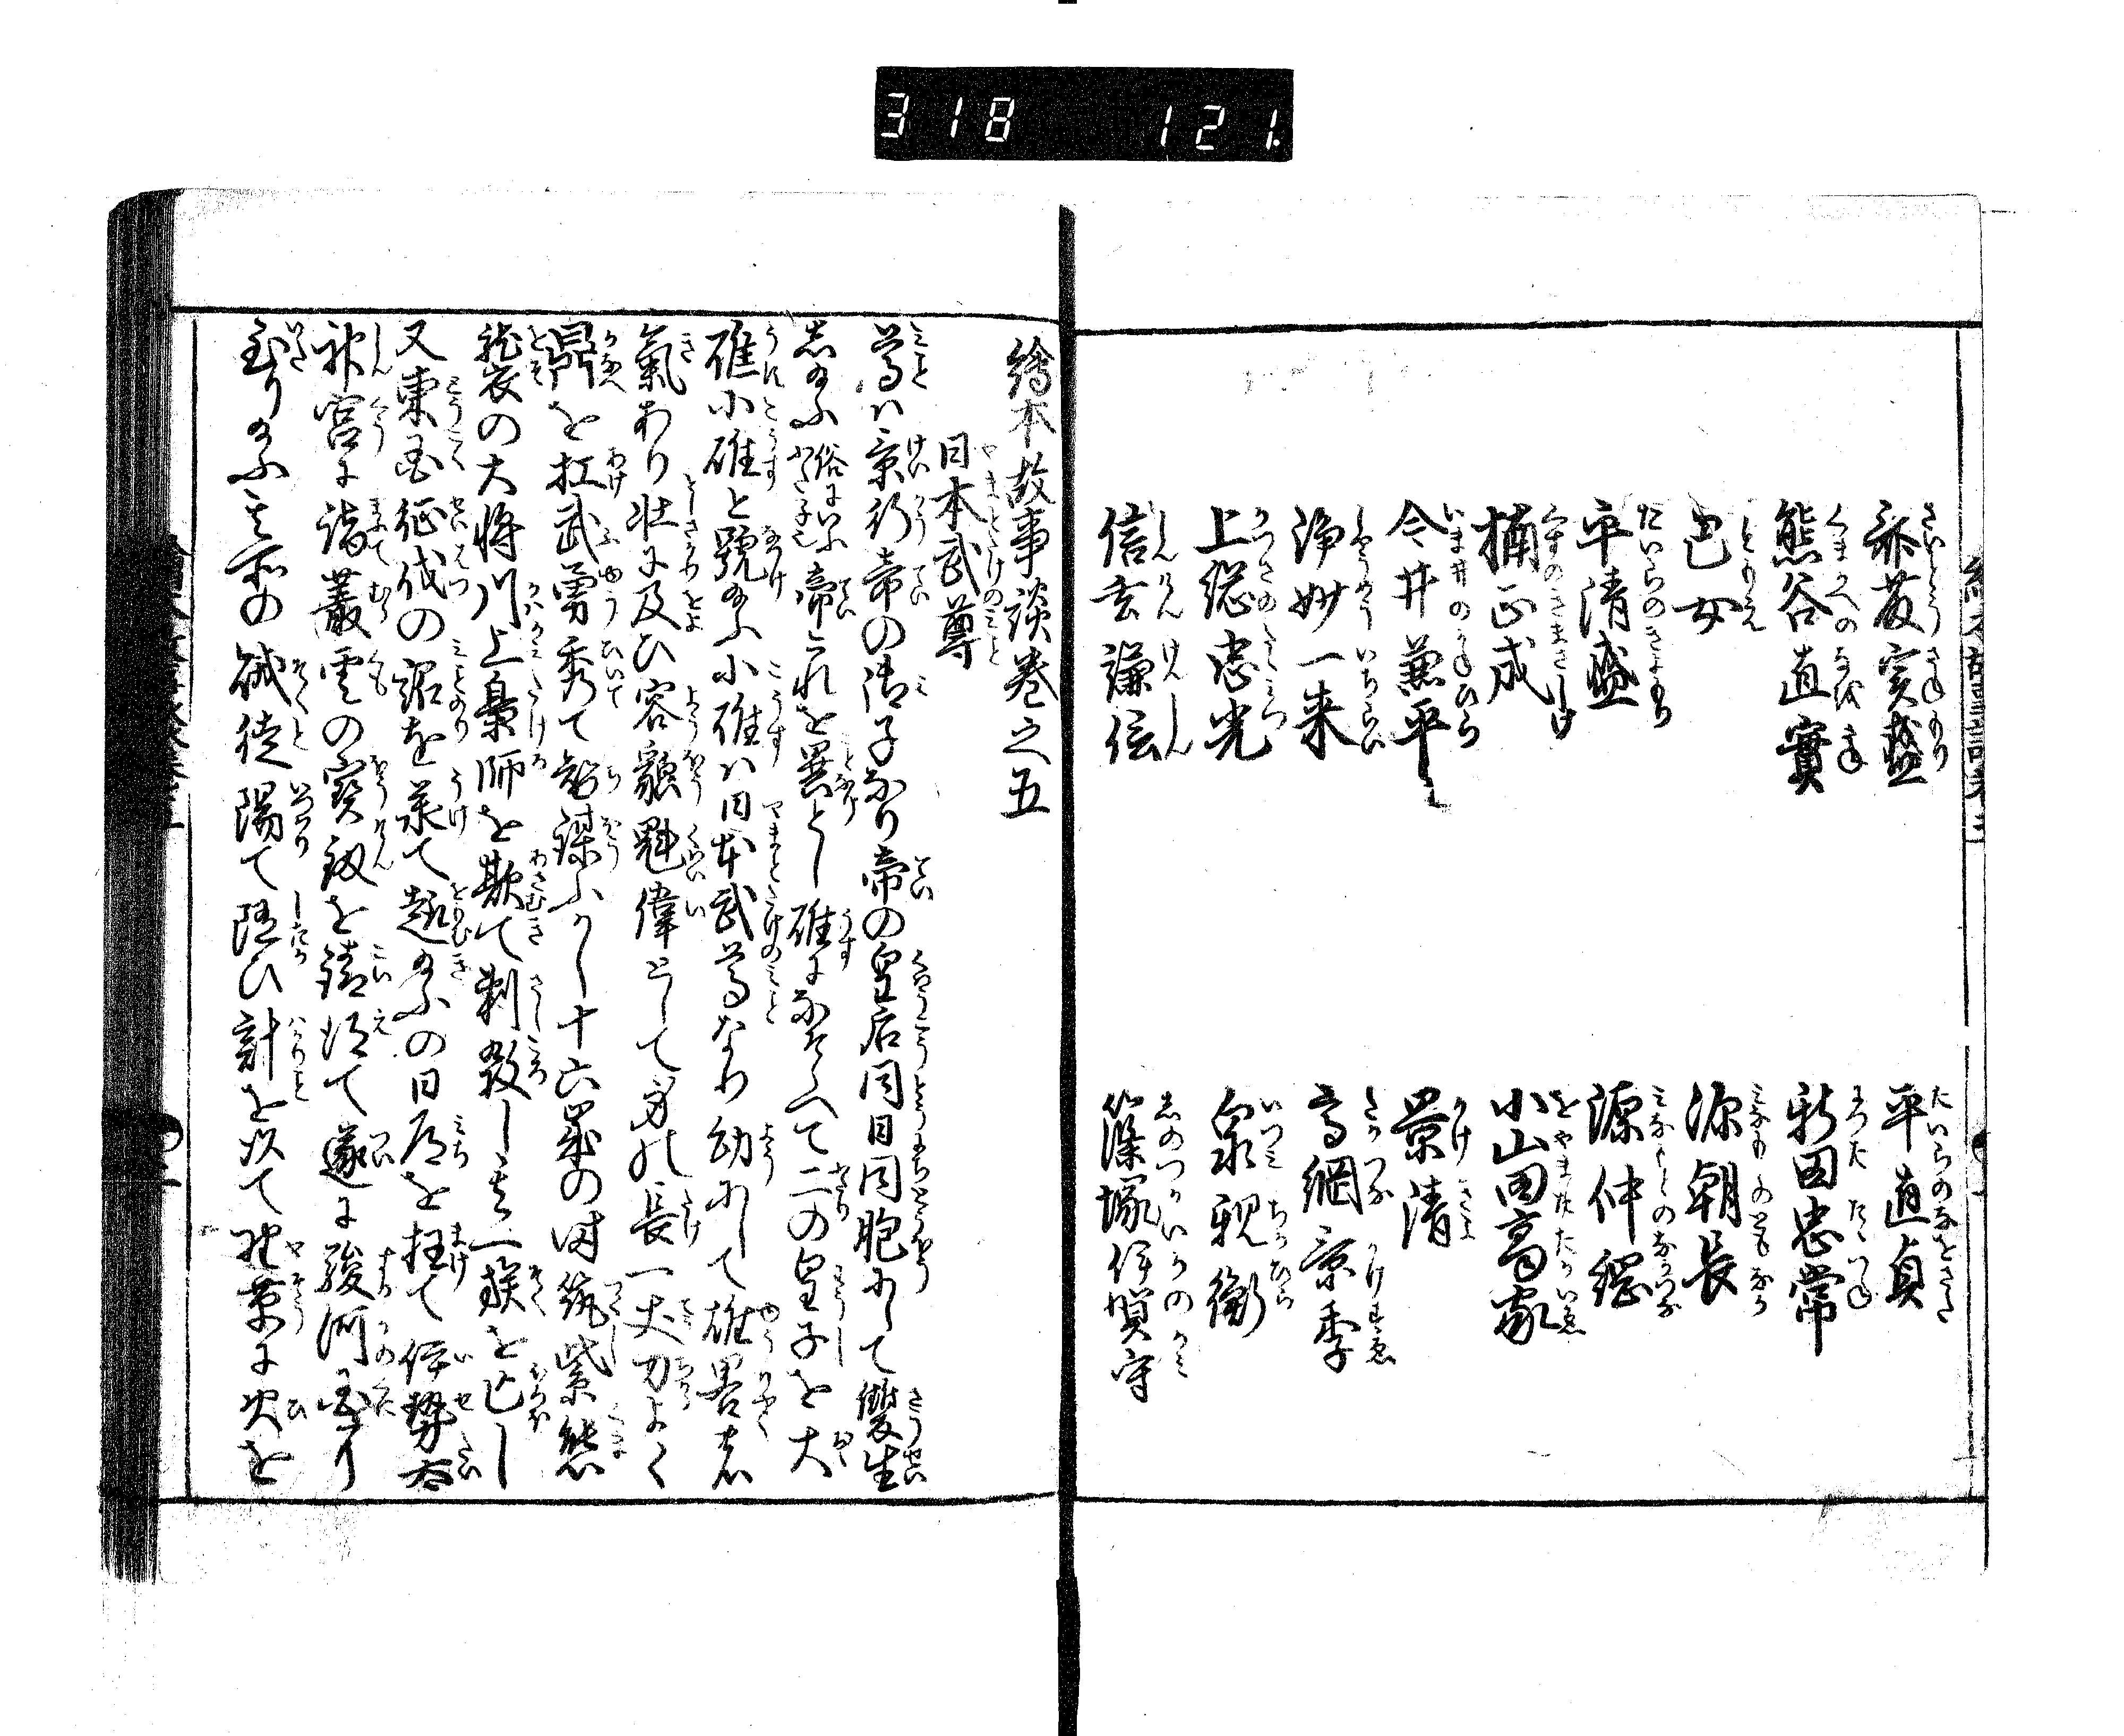 318 121
斎藤実盛
平直貞
熊谷直實
新田忠常
巴女
源朝長
平清盛
源仲綱
楠正成
小山田高家
今井兼平
景清
浄妙一来
高綱景季
上総忠光
泉親衡
信玄謙信
篠塚伊賀守
繪本故事談巻之五
日本武尊
尊ハ景行帝の御子なり帝の皇后同日同胞にして雙生
し給ふ俗にいふふたご也帝これを異とし碓になぞらへて二の皇子を大
碓小碓と號給ふ小碓ハ日本武尊なり幼にして雄畧の
氣あり壮に及ひ容貌魁偉として身の長一丈力よく
鼎を扛武勇秀て智謀ふかし十六歳の時筑紫熊
襲の大将川上梟師を欺て刺殺し其一族を亡し
又東国征伐の詔を承て趣給ふの日道を枉て伊勢太
神宮に詣叢雲の寳釼を請得て遂に駿河国に
至り給ふ其所の賊徒陽て随ひ計を以て野草に火を